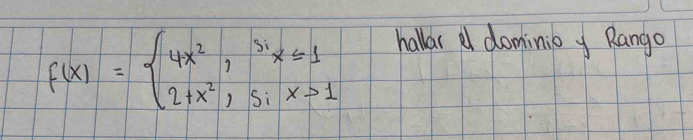 f(x) = { 4x², si x ≤ 1
2+x², si x > 1
hallar el dominio y Rango